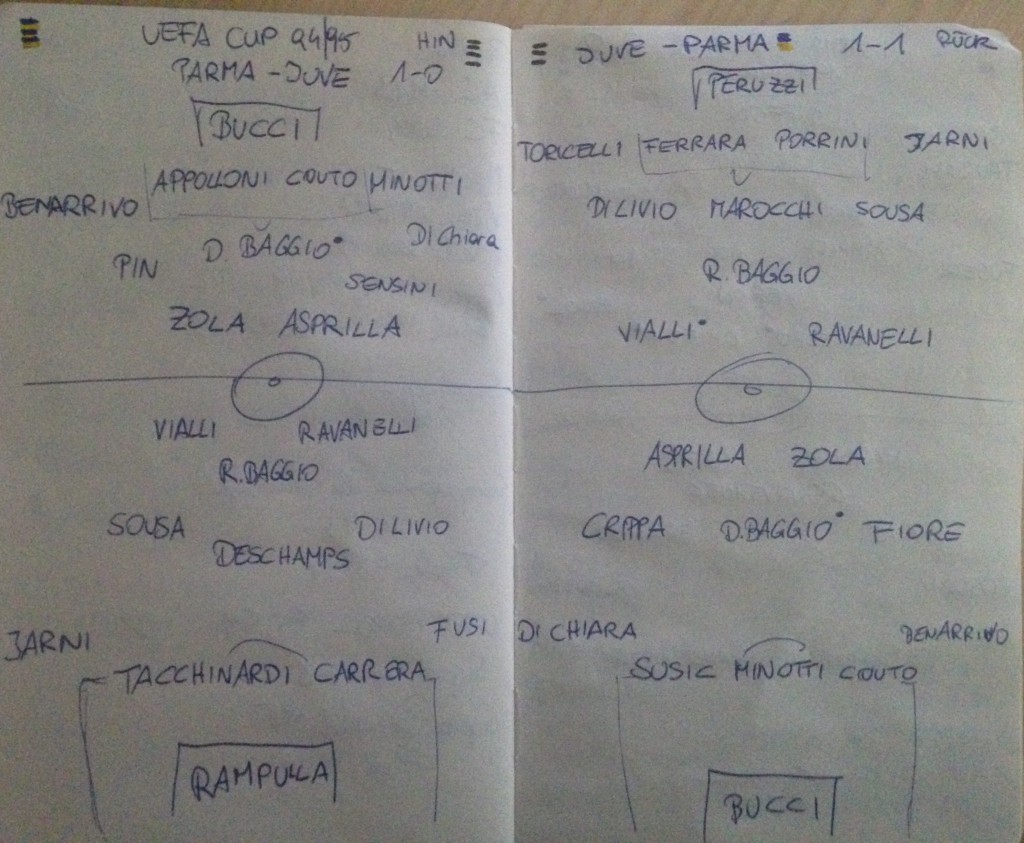 UEFA CUP 94/95 HIN
PARMA - JUVE 1-0
BUCCI
APPOLLONI COUTO MINOTTI
BENARRIVO
D. BAGGIO Di Chiara
PIN
SENSINI
ZOLA ASPRILLA
VIALLI RAVANELLI
R. BAGGIO
SOUSA DI LIVIO
DESCHAMPS
JARNI FUSI
TACCHINARDI CARRERA
RAMPULLA
JUVE - PARMA 1-1 RÜCK
PERUZZI
TORICELLI FERRARA PORRINI JARNI
DI LIVIO MAROCCHI SOUSA
R. BAGGIO
VIALLI RAVANELLI
ASPRILLA ZOLA
CRIPPA D. BAGGIO FIORE
DI CHIARA BENARRIVO
SUSIC MINOTTI COUTO
BUCCI